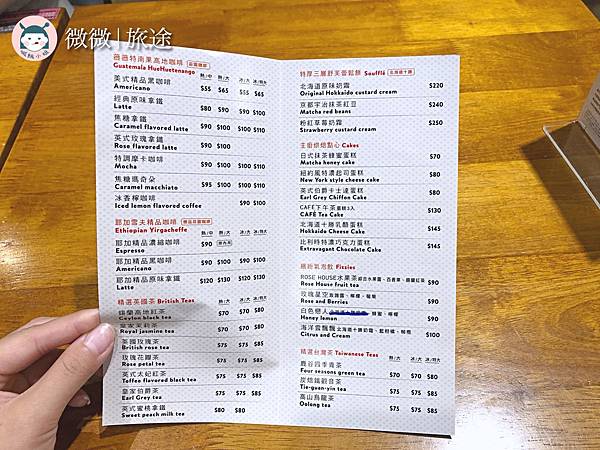 微微|旅途
薇薇特南果高地咖啡
Guatemala HueHuetenango
熱/中 熱/大 冰/大 冰/特大
英式精品黑咖啡 $55 $65 $55 $65
Americano
經典原味拿鐵 $80 $90 $90 $100
Latte
焦糖拿鐵 $90 $100 $100 $110
Caramel flavored latte
英式玫瑰拿鐵 $90 $100 $100 $110
Rose flavored latte
特調摩卡咖啡 $90 $100 $100 $110
Mocha
焦糖瑪奇朵 $95 $100 $100 $110
Caramel macchiato
冰香檸咖啡 $90 $100
Iced lemon flavored coffee
耶加雪夫精品咖啡
Ethiopian Yirgacheffe
耶加精品濃縮咖啡 $90
Espresso
耶加精品黑咖啡 $90 $100 $90 $100
Americano
耶加精品原味拿鐵 $120 $130 $120 $130
Latte
精選英國茶 British Teas
熱/大 冰/大 冰/特大
錫蘭高地紅茶 $70 $70 $80
Ceylon black tea
皇家茉莉茶 $70 $70 $80
Royal jasmine tea
英國玫瑰茶 $75 $75 $85
British rose tea
玫瑰花瓣茶 $75 $75 $85
Rose petal tea
英式太妃紅茶 $75 $75 $85
Toffee flavored black tea
皇家伯爵茶 $75 $75 $85
Earl Grey tea
英式蜜桃拿鐵 $80 $80
Sweet peach milk tea
特厚三層舒芙蕾鬆餅 Soufflé
北海道原味奶霜 $220
Original Hokkaido custard cream
京都宇治抹茶紅豆 $240
Matcha red beans
粉紅草莓奶霜 $250
Strawberry custard cream
主廚烘焙點心 Cakes
日式抹茶蜂蜜蛋糕 $70
Matcha honey cake
紐約風特濃起司蛋糕 $80
New York style cheese cake
英式伯爵卡士達蛋糕 $80
Earl Grey Chiffon Cake
CAFÉ下午茶蛋糕3入 $130
CAFÉ Tea Cake
北海道十勝乳酪蛋糕 $145
Hokkaido Cheese Cake
比利時特濃巧克力蛋糕 $145
Extravagant Chocolate Cake
繽紛氣泡飲 Fizzies
ROSE HOUSE水果茶 $90
Rose House fruit tea
玫瑰星空 $90
Rose and Berries
白色戀人 $90
Honey lemon
海洋雪飄飄 $100
Citrus and Cream
精選台灣茶 Taiwanese Teas
熱/大 冰/大 冰/特大
鹿谷四季青茶 $70 $70 $80
Four seasons green tea
炭焙鐵觀音茶 $75 $75 $85
Tie-guan-yin tea
高山烏龍茶 $75 $75 $85
Oolong tea